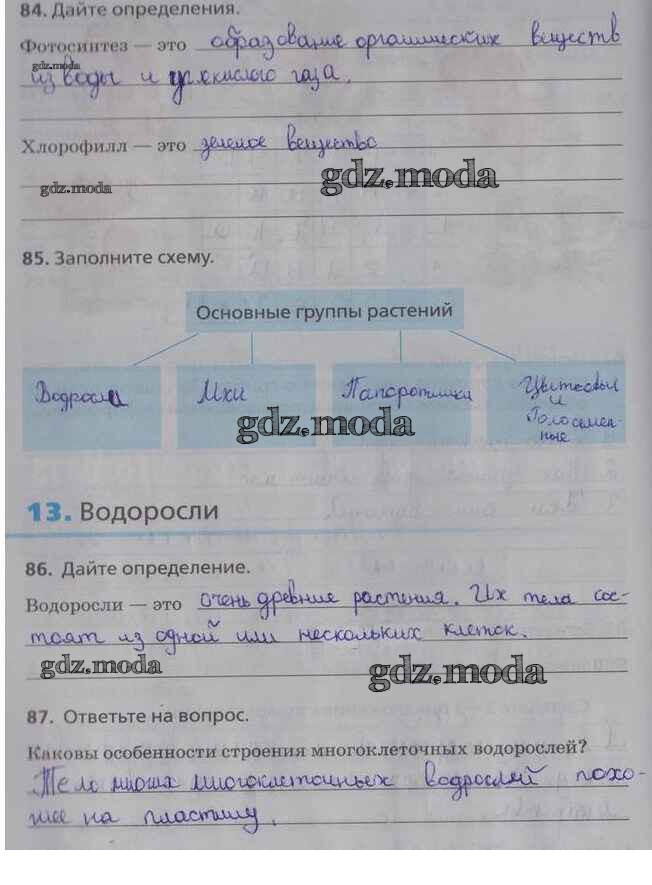 84. Дайте определения.
Фотосинтез — это образование органических веществ
gdz.moda
из воды и углекислого газа.
Хлорофилл — это зелёное вещество
gdz.moda
gdz.moda
85. Заполните схему.
Основные группы растений
Водросла
Мхи
Папоротники
Цветковы
и
Голосемен-
ные
gdz.moda
13. Водоросли
86. Дайте определение.
Водоросли — это очень древние растения. Их тела сос-
тоят из одной или нескольких клеток.
gdz.moda
gdz.moda
87. Ответьте на вопрос.
Каковы особенности строения многоклеточных водорослей?
Тело многих многоклеточных водрослей похо-
жее на пластину.